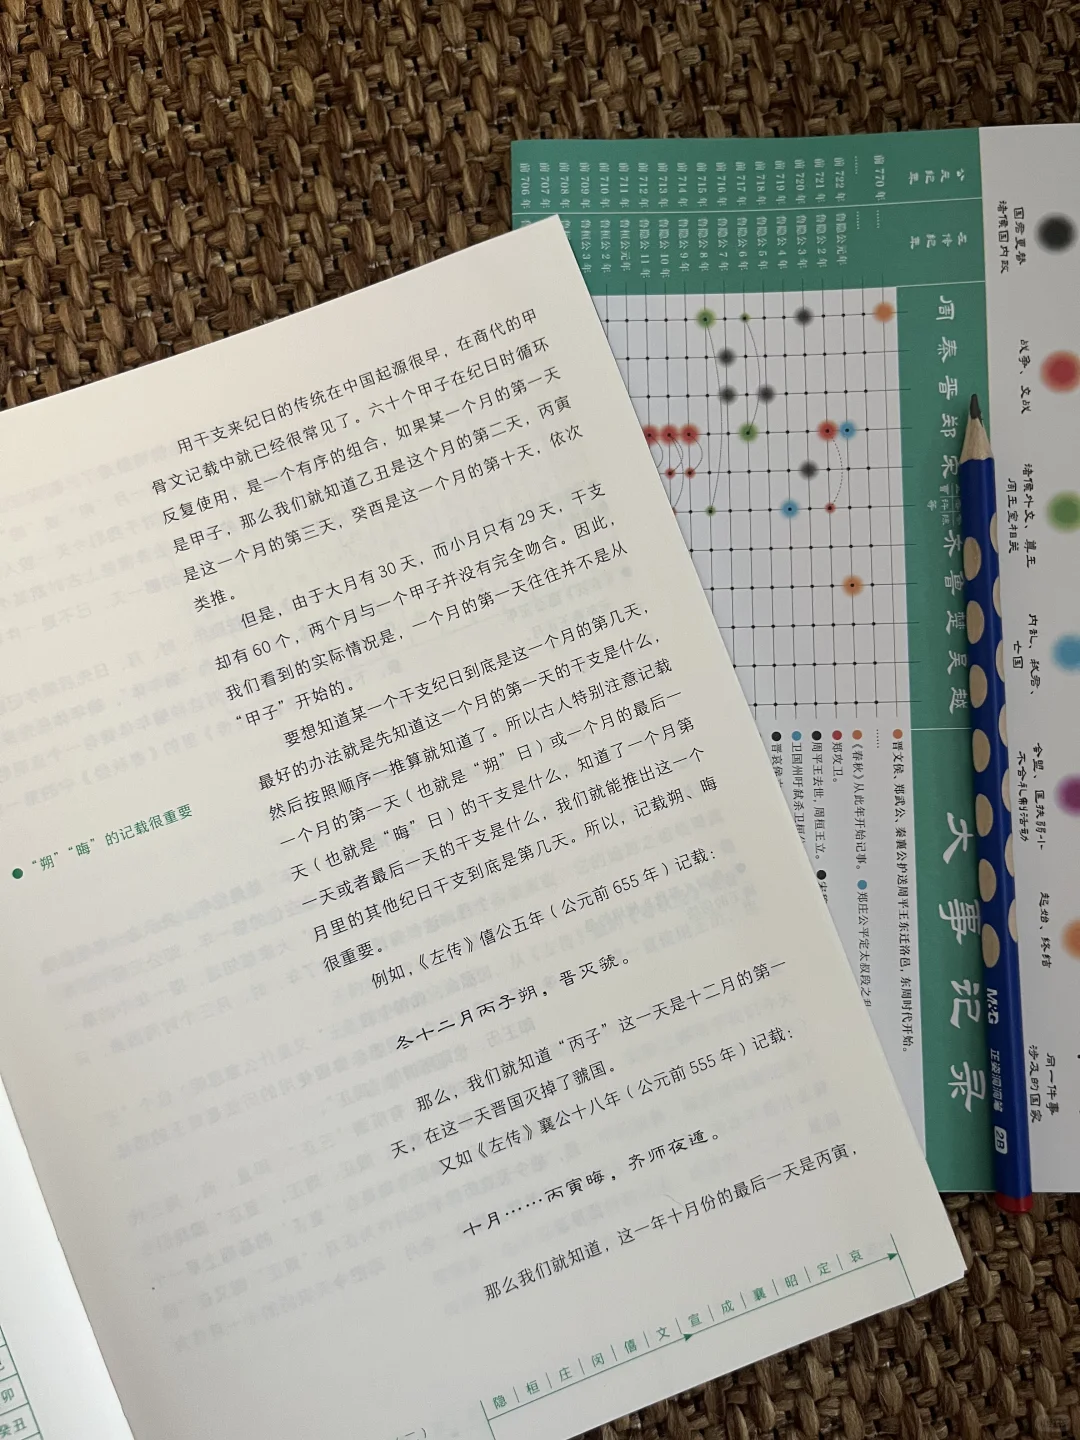 用干支来纪日的传统在中国起源很早，在商代的甲
骨文记载中就已经很常见了。六十个甲子在纪日时循环
反复使用，是一个有序的组合，如果某一个月的第一天
是甲子，那么我们就知道乙丑是这个月的第二天，丙寅
是这一个月的第三天，癸酉是这一个月的第十天，依次
类推。
但是，由于大月有30天，而小月只有29天，干支
却有60个，两个月与一个甲子并没有完全吻合。因此，
我们看到的实际情况是，一个月的第一天往往并不是从
“甲子”开始的。
要想知道某一个干支纪日到底是这一个月的第几天，
最好的办法就是先知道这一个月的第一天的干支是什么，
然后按照顺序一推算就知道了。所以古人特别注意记载
一个月的第一天（也就是“朔”日）或一个月的最后一
天（也就是“晦”日）的干支是什么，知道了一个月第
一天或者最后一天的干支是什么，我们就能推出这一个
月里的其他纪日干支到底是第几天。所以，记载朔、晦
很重要。
“朔”“晦”的记载很重要
例如，《左传》僖公五年（公元前655年）记载：
冬十二月丙子朔，晋灭虢。
那么，我们就知道“丙子”这一天是十二月的第一
天，在这一天晋国灭掉了虢国。
又如《左传》襄公十八年（公元前555年）记载：
十月……丙寅晦，齐师夜遁。
那么我们就知道，这一年十月份的最后一天是丙寅，
隐 桓 庄 闵 僖 文 宣 成 襄 昭 定 哀
卯
癸丑
公元纪年
左传纪年
前770年 ……
……
前722年 鲁隐公元年
前721年 鲁隐公2年
前720年 鲁隐公3年
前719年
前718年 鲁隐公5年
前717年 鲁隐公6年
前716年 鲁隐公7年
前715年 鲁隐公8年
前714年 鲁隐公9年
前713年 鲁隐公10年
前712年 鲁隐公11年
前711年 鲁桓公元年
前710年 鲁桓公2年
前709年 鲁桓公3年
前708年
前707年
前706年
周 秦 晋 郑 宋
齐 鲁 楚 吴 越
大事记录
晋文侯、郑武公、秦襄公护送周平王东迁洛邑，东周时代开始。
……
《春秋》从此年开始记事。
郑庄公平定太叔段之
郑攻卫。
周平王去世，周桓王立。
卫国州吁弑杀卫桓
晋哀侯
国君更替
诸侯国内政
战争、交战
诸侯外交、尊王
周王室相关
内乱、弑君、
亡国
会盟、匡扶弱小
不合礼制活动
起始、终结
同一件事
涉及的国家
M&G 正姿洞洞笔 2B